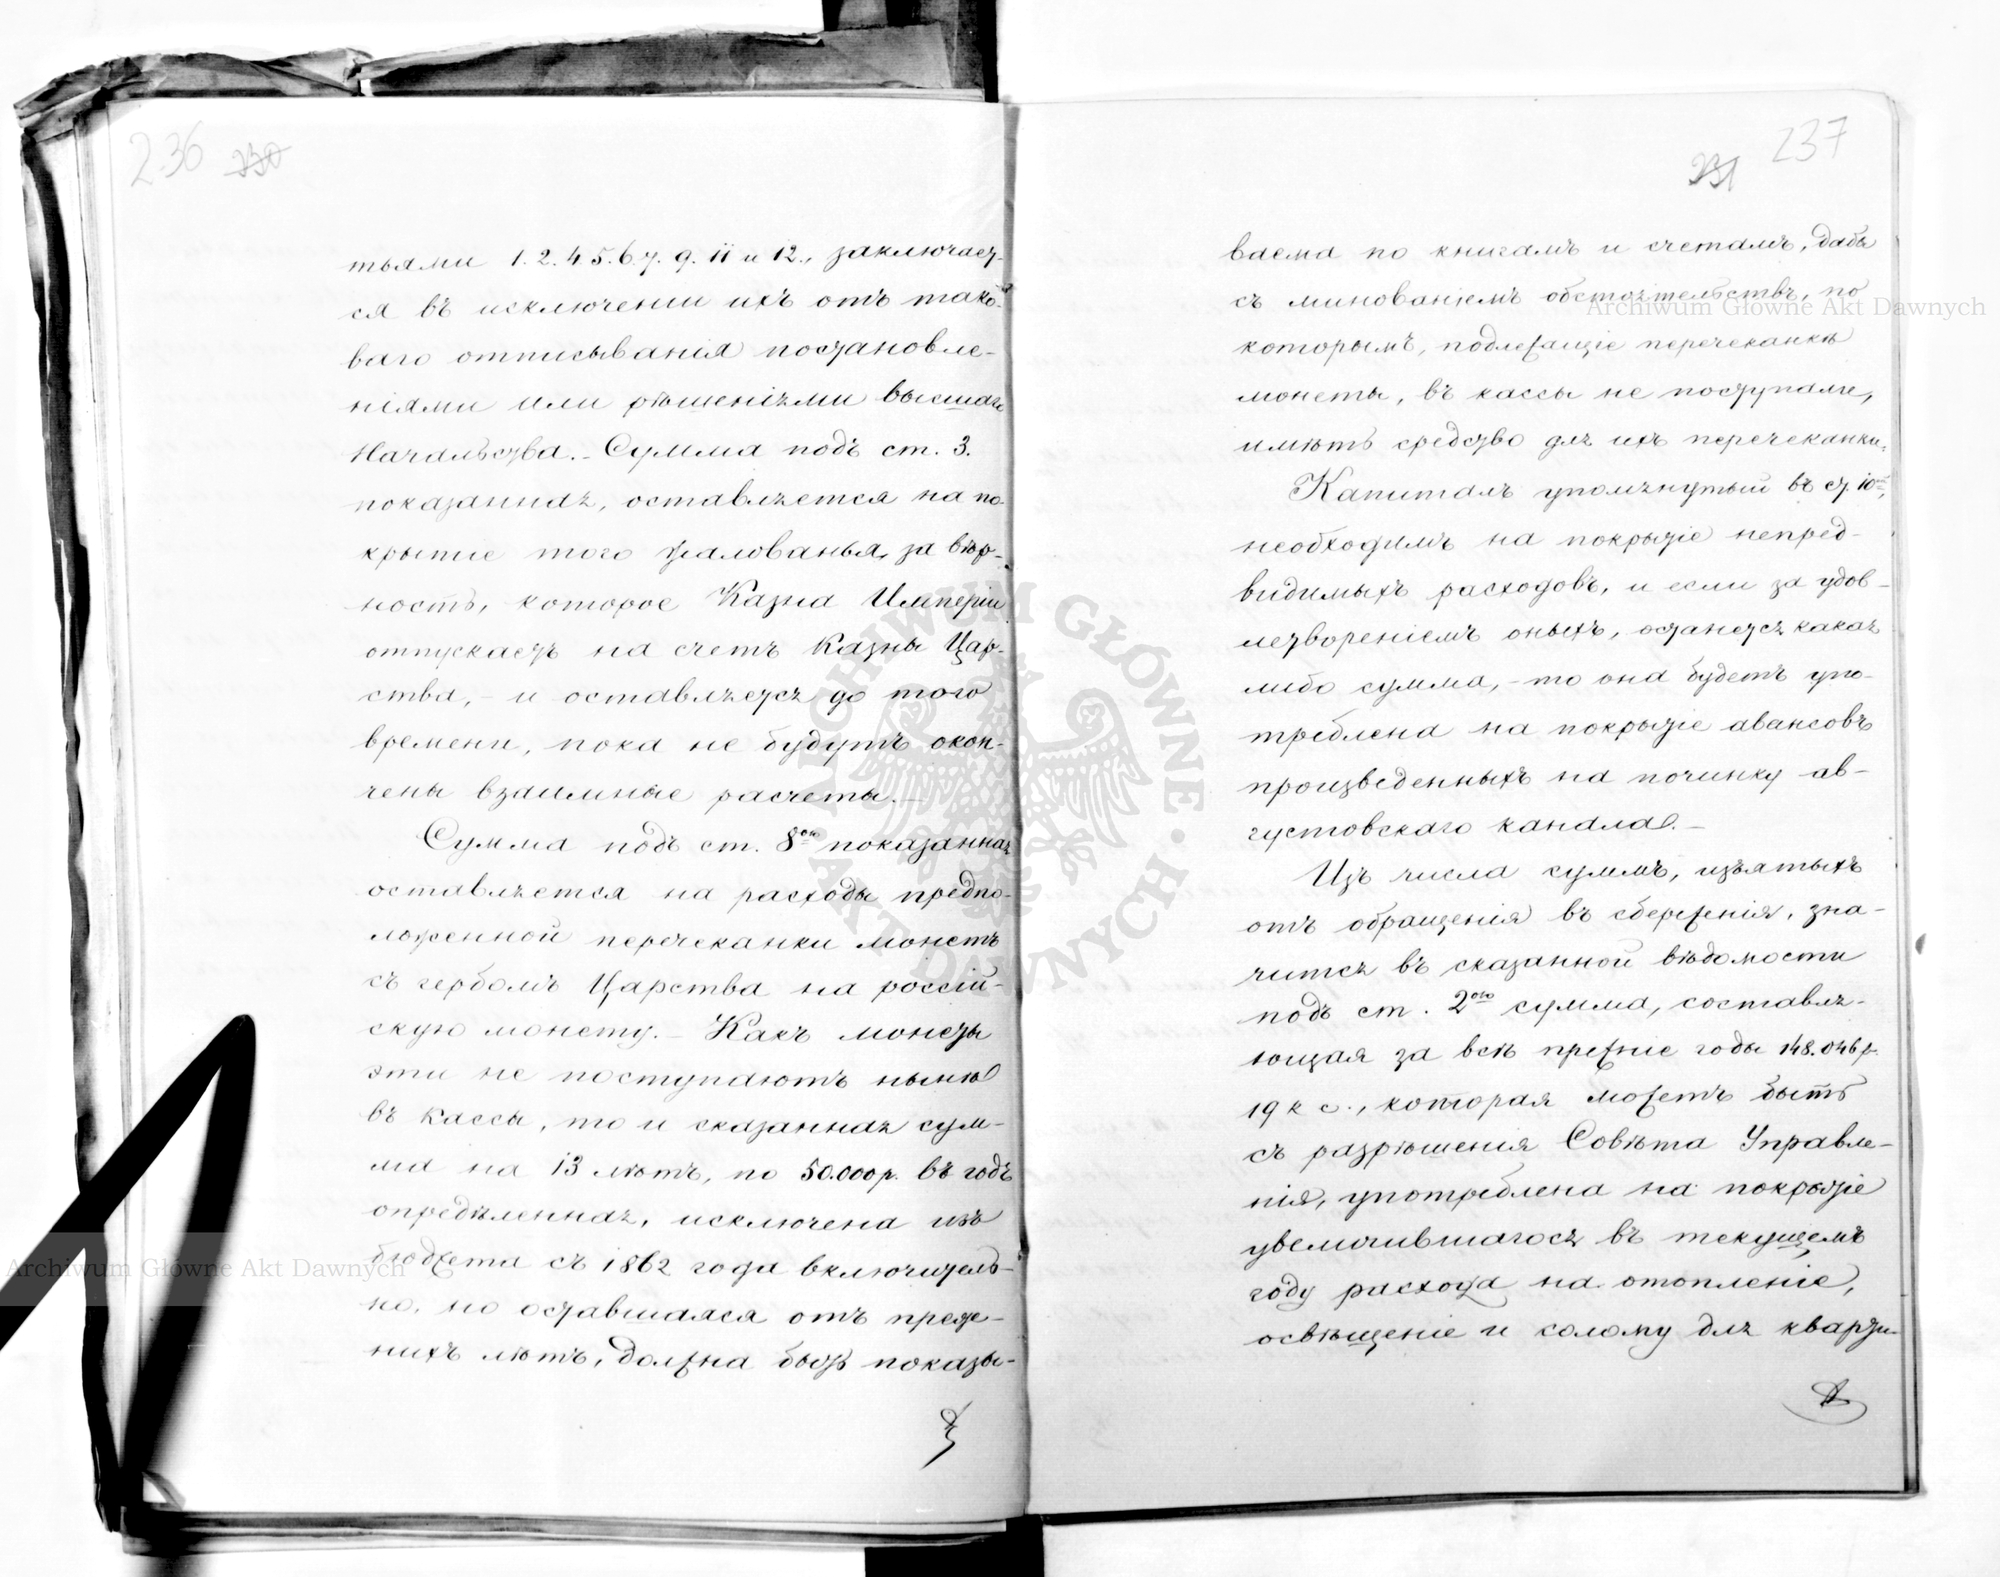 236 230
тьями 1. 2. 4. 5. 6. 7. 9. 11 и 12., заключает-
ся въ исключеніи ихъ отъ тако-
ваго отписыванія постановле-
ніями или рѣшеніями высшаго
Начальства. - Сумма подъ ст. 3.
показанная, оставляется на по-
крытіе того жалованья, за вѣр-
ность, которое Казна Имперіи
отпускаетъ на счетъ Казны Цар-
ства, - и оставляется до того
времени, пока не будутъ окон-
чены взаимные расчеты. -
Сумма подъ ст. 8ою показанная
оставляется на расходы предпо-
ложенной перечеканки монетъ
съ гербомъ Царства на россій-
скую монету. - Какъ монеты
эти не поступаютъ нынѣ
въ кассы, то и сказанная сум-
ма на 13 лѣтъ, по 50.000 р. въ годъ
опредѣленная, исключена изъ
бюджета съ 1862 года включитель-
но, но оставшаяся отъ преж-
нихъ лѣтъ, должна быть показы-
237
231
ваема по книгамъ и счетамъ, дабы
съ минованіемъ обстоятельствъ, по
которымъ, подлежащіе перечеканкѣ
монеты, въ кассы не поступали,
имѣть средство для ихъ перечеканки.
Капиталъ упомянутый въ ст. 10ой,
необходимъ на покрытіе непред-
видимыхъ расходовъ, и если за удов-
летвореніемъ оныхъ, останется какая
либо сумма, - то она будетъ упо-
треблена на покрытіе авансовъ
произведенныхъ на починку ав-
густовскаго канала. -
Изъ числа суммъ, изъятыхъ
отъ обращенія въ сбереженія, зна-
чится въ сказанной вѣдомости
подъ ст. 2ою сумма, составля-
ющая за всѣ прежніе годы 148.046 р.
19 к с., которая можетъ быть
съ разрѣшенія Совѣта Управле-
нія, употреблена на покрытіе
увеличившагося въ текущемъ
году расхода на отопленіе,
освѣщеніе и солому для кварти-
Archiwum Główne Akt Dawnych
Archiwum Główne Akt Dawnych
ARCHIWUM GŁÓWNE · AKT DAWNYCH ·